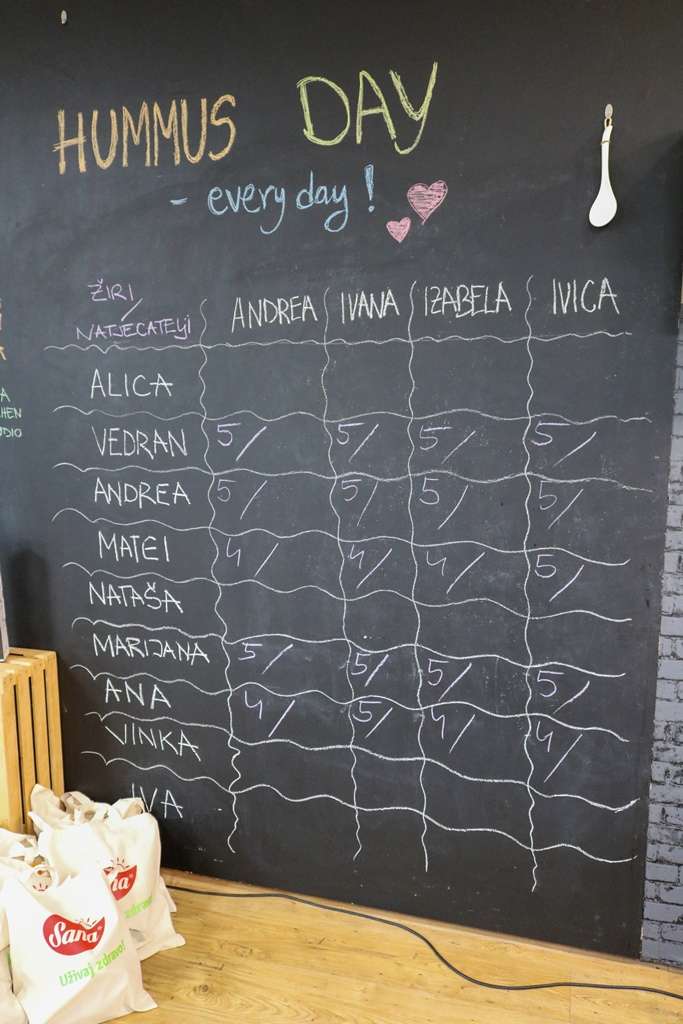 HUMMUS DAY
- every day!
ŽIRI/
NATJECATELJI ANDREA IVANA IZABELA IVICA
ALICA
VEDRAN 5/ 5/ 5/ 5/
ANDREA 5/ 5/ 5/ 5/
MATEI 4/ 4/ 4/ 5/
NATAŠA
MARIJANA 5/ 5/ 5/ 5/
ANA 4/ 5/ 4/ 4/
VINKA
IVA
Sana
Uživaj zdravo!